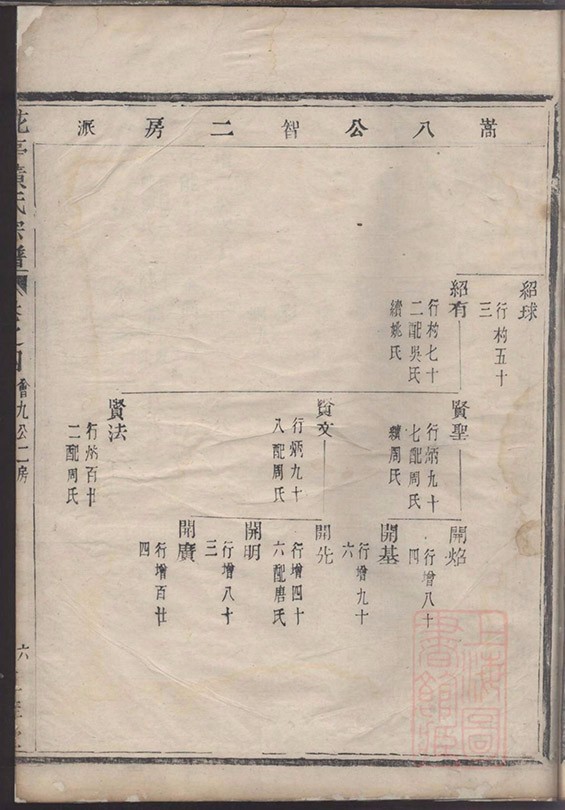 嵩八公智二房派
紹球
行杓五十
三
紹有
行杓七十
二配吳氏
續姚氏
賢聖
行炳九十
七配周氏
續周氏
賢文
行炳九十
八配周氏
賢法
行炳百廿
二配周氏
開焰
行增八十
四
開基
行增九十
六
開先
行增四十
六配唐氏
開明
行增八十
三
開廣
行增百廿
四
黃氏宗譜
會九公二房
六
上海圖書館藏